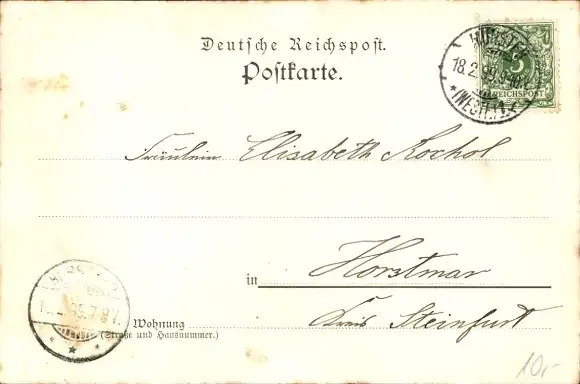 Deutsche Reichspost.
Postkarte.
MÜNSTER
18.2.99
* (WESTF.) 1.
5
REICHSPOST
Fräulein Elisabeth Roshol
in Horstmar
Wohnung
(Straße und Hausnummer.)
Kreis Steinfurt
10,-